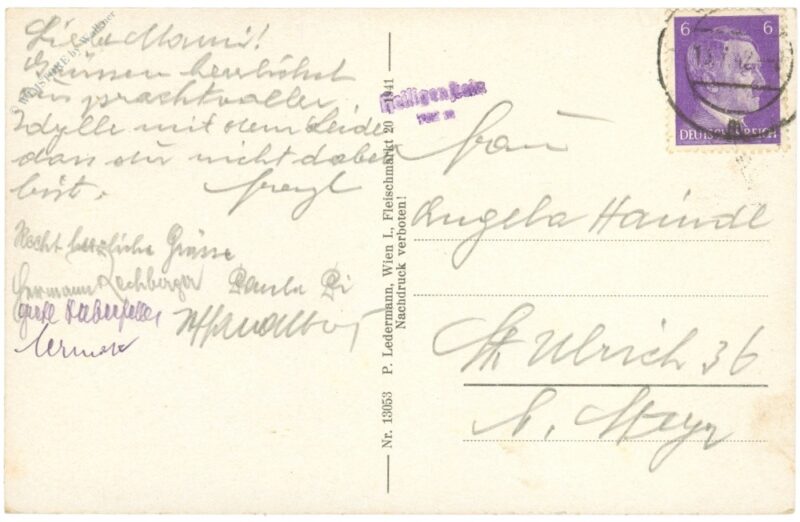 Liebe Mami!
Grüssen herzlichst
aus prachtvoller
Idylle mit dem Leide
dass du nicht dabei
bist.
Recht herzliche Grüsse
Hermann Lechberger Paula
Gretl
Nr. 13053 P. Ledermann, Wien I., Fleischmarkt 20 1941
Nachdruck verboten!
Heiligenstein
6 6
DEUTSCHES REICH
Frau
Angela Haindl
St. Ulrich 36
b. Steyr